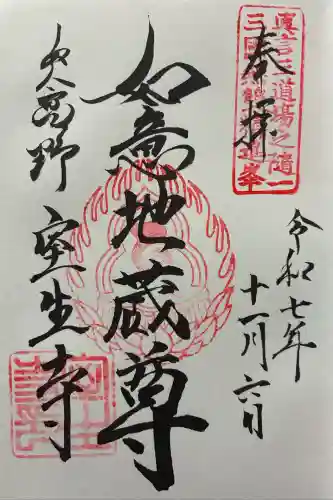 奉拝
令和七年
十一月六日
如意地蔵尊
女人高野
室生寺
真言三道場之随一